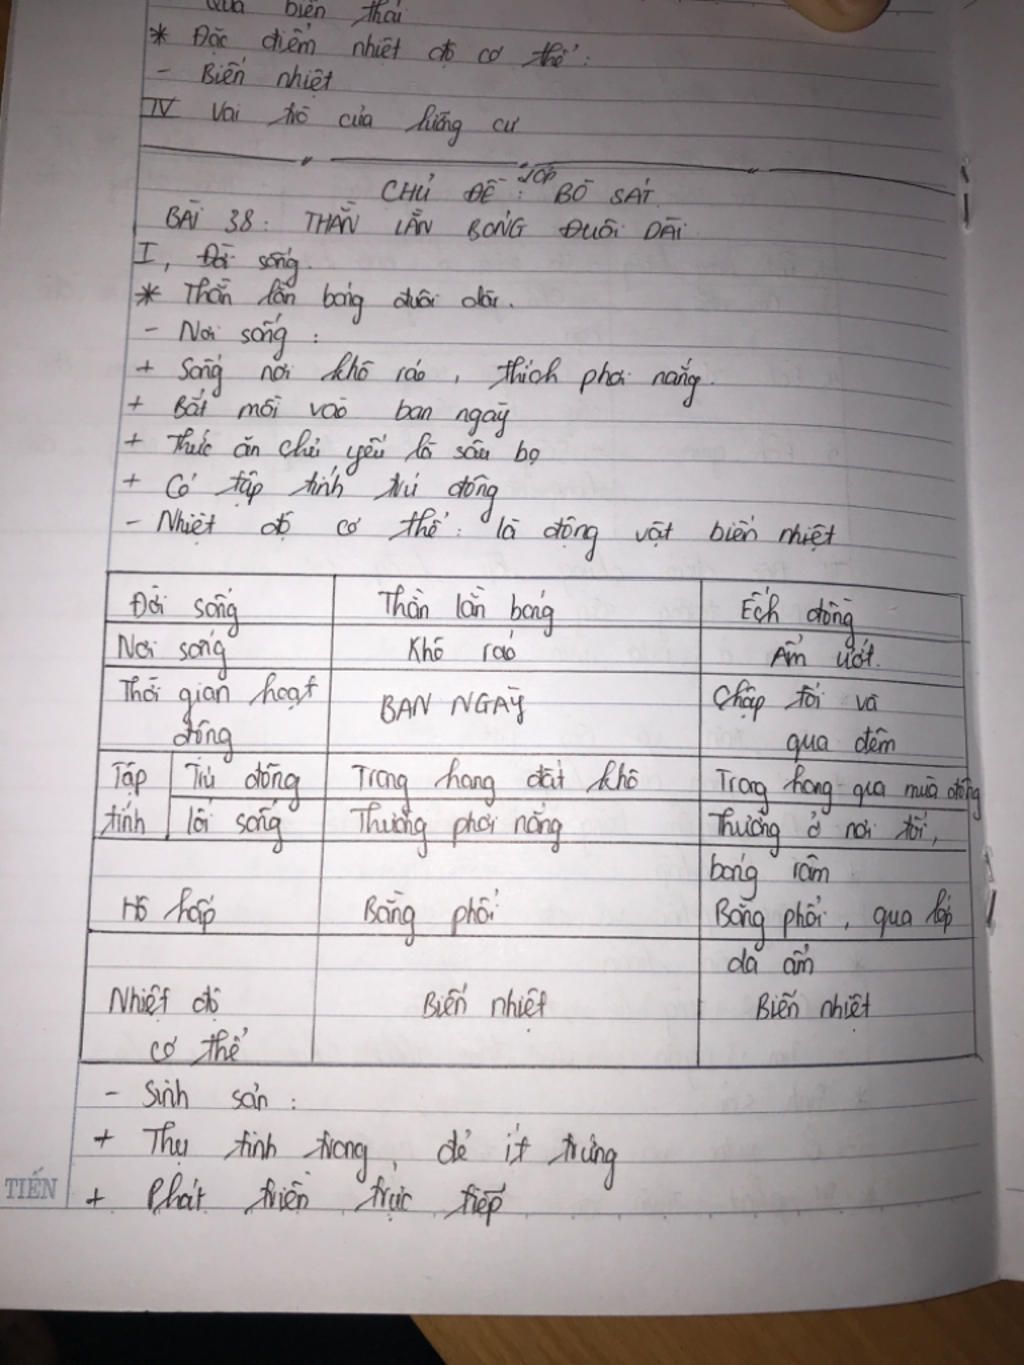 Qua biến thái
* Đặc điểm nhiệt độ cơ thể:
- Biến nhiệt
IV Vai trò của lưỡng cư
CHỦ ĐỀ: LỚP BÒ SÁT
BÀI 38: THẰN LẰN BÓNG ĐUÔI DÀI
I, Đời sống.
* Thằn lằn bóng đuôi dài.
- Nơi sống:
+ Sống nơi khô ráo, thích phơi nắng.
+ Bắt mồi vào ban ngày
+ Thức ăn chủ yếu là sâu bọ
+ Có tập tính trú đông
- Nhiệt độ cơ thể: là động vật biến nhiệt
Đời sống Thằn lằn bóng Ếch đồng
Nơi sống Khô ráo Ẩm ướt.
Thời gian hoạt động BAN NGÀY Chập tối và
qua đêm
Tập tính Trú đông Trong hang đất khô Trong hang qua mùa đông
lối sống Thường phơi nắng Thường ở nơi tối,
bóng râm
Hô hấp Bằng phổi Bằng phổi, qua lớp
da ẩm
Nhiệt độ Biến nhiệt Biến nhiệt
cơ thể
- Sinh sản:
+ Thụ tinh trong, đẻ ít trứng
TIẾN
+ Phát triển trực tiếp